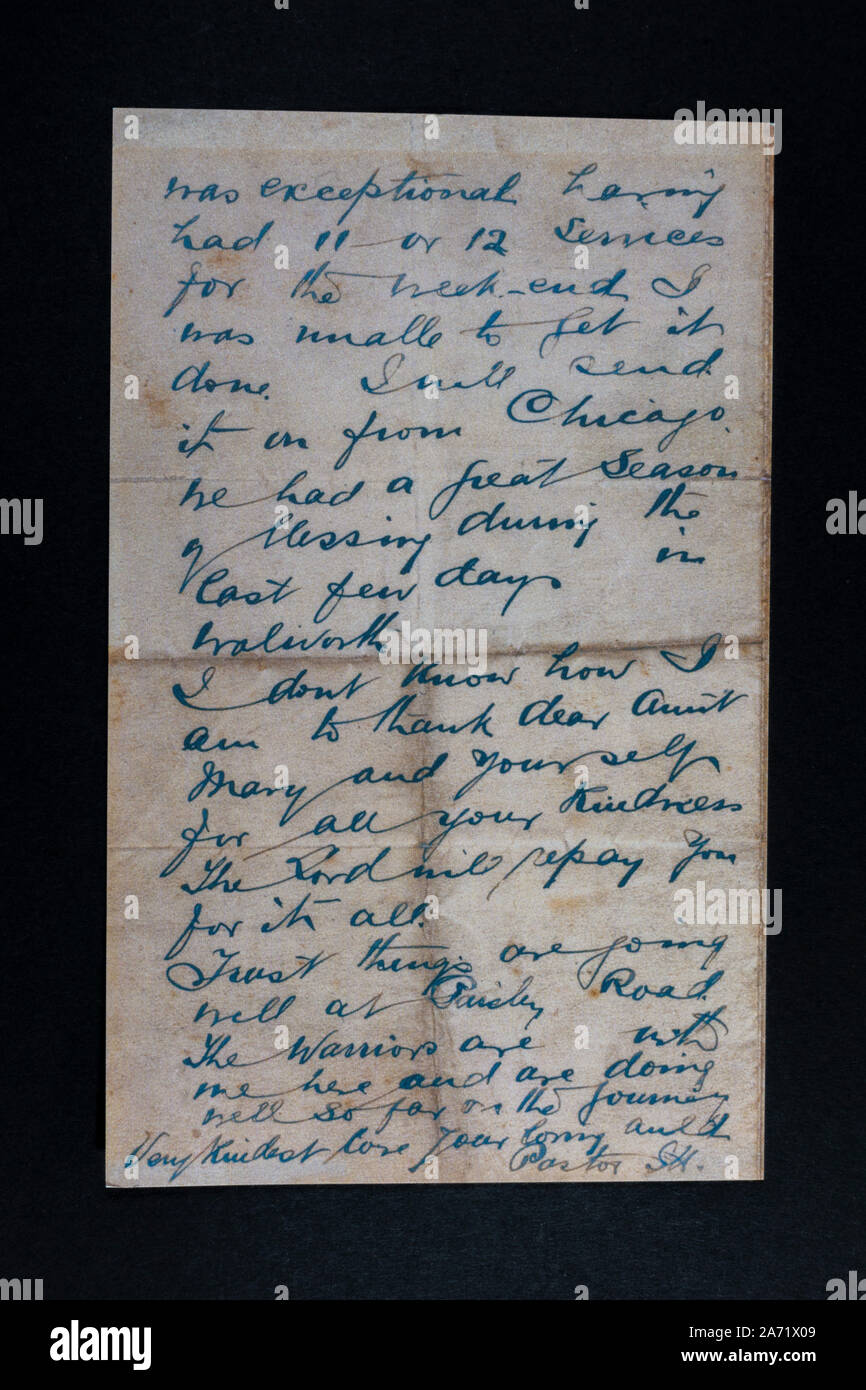 was exceptional having
had 11 or 12 Services
for the week-end I
was unable to get it
done. I will send
it on from Chicago.
we had a great Season
of blessing during the
last few days in
Walworth
I dont know how I
am to thank dear Aunt
Mary and yourself
for all your Kindness
The Lord will repay you
for it all.
Trust things are going
well at Paisley Road.
The Warriors are with
me here and are doing
well so far on the journey
Very Kindest love your loving auld
Pastor J.H.
alamy
Image ID: 2A71X09
www.alamy.com